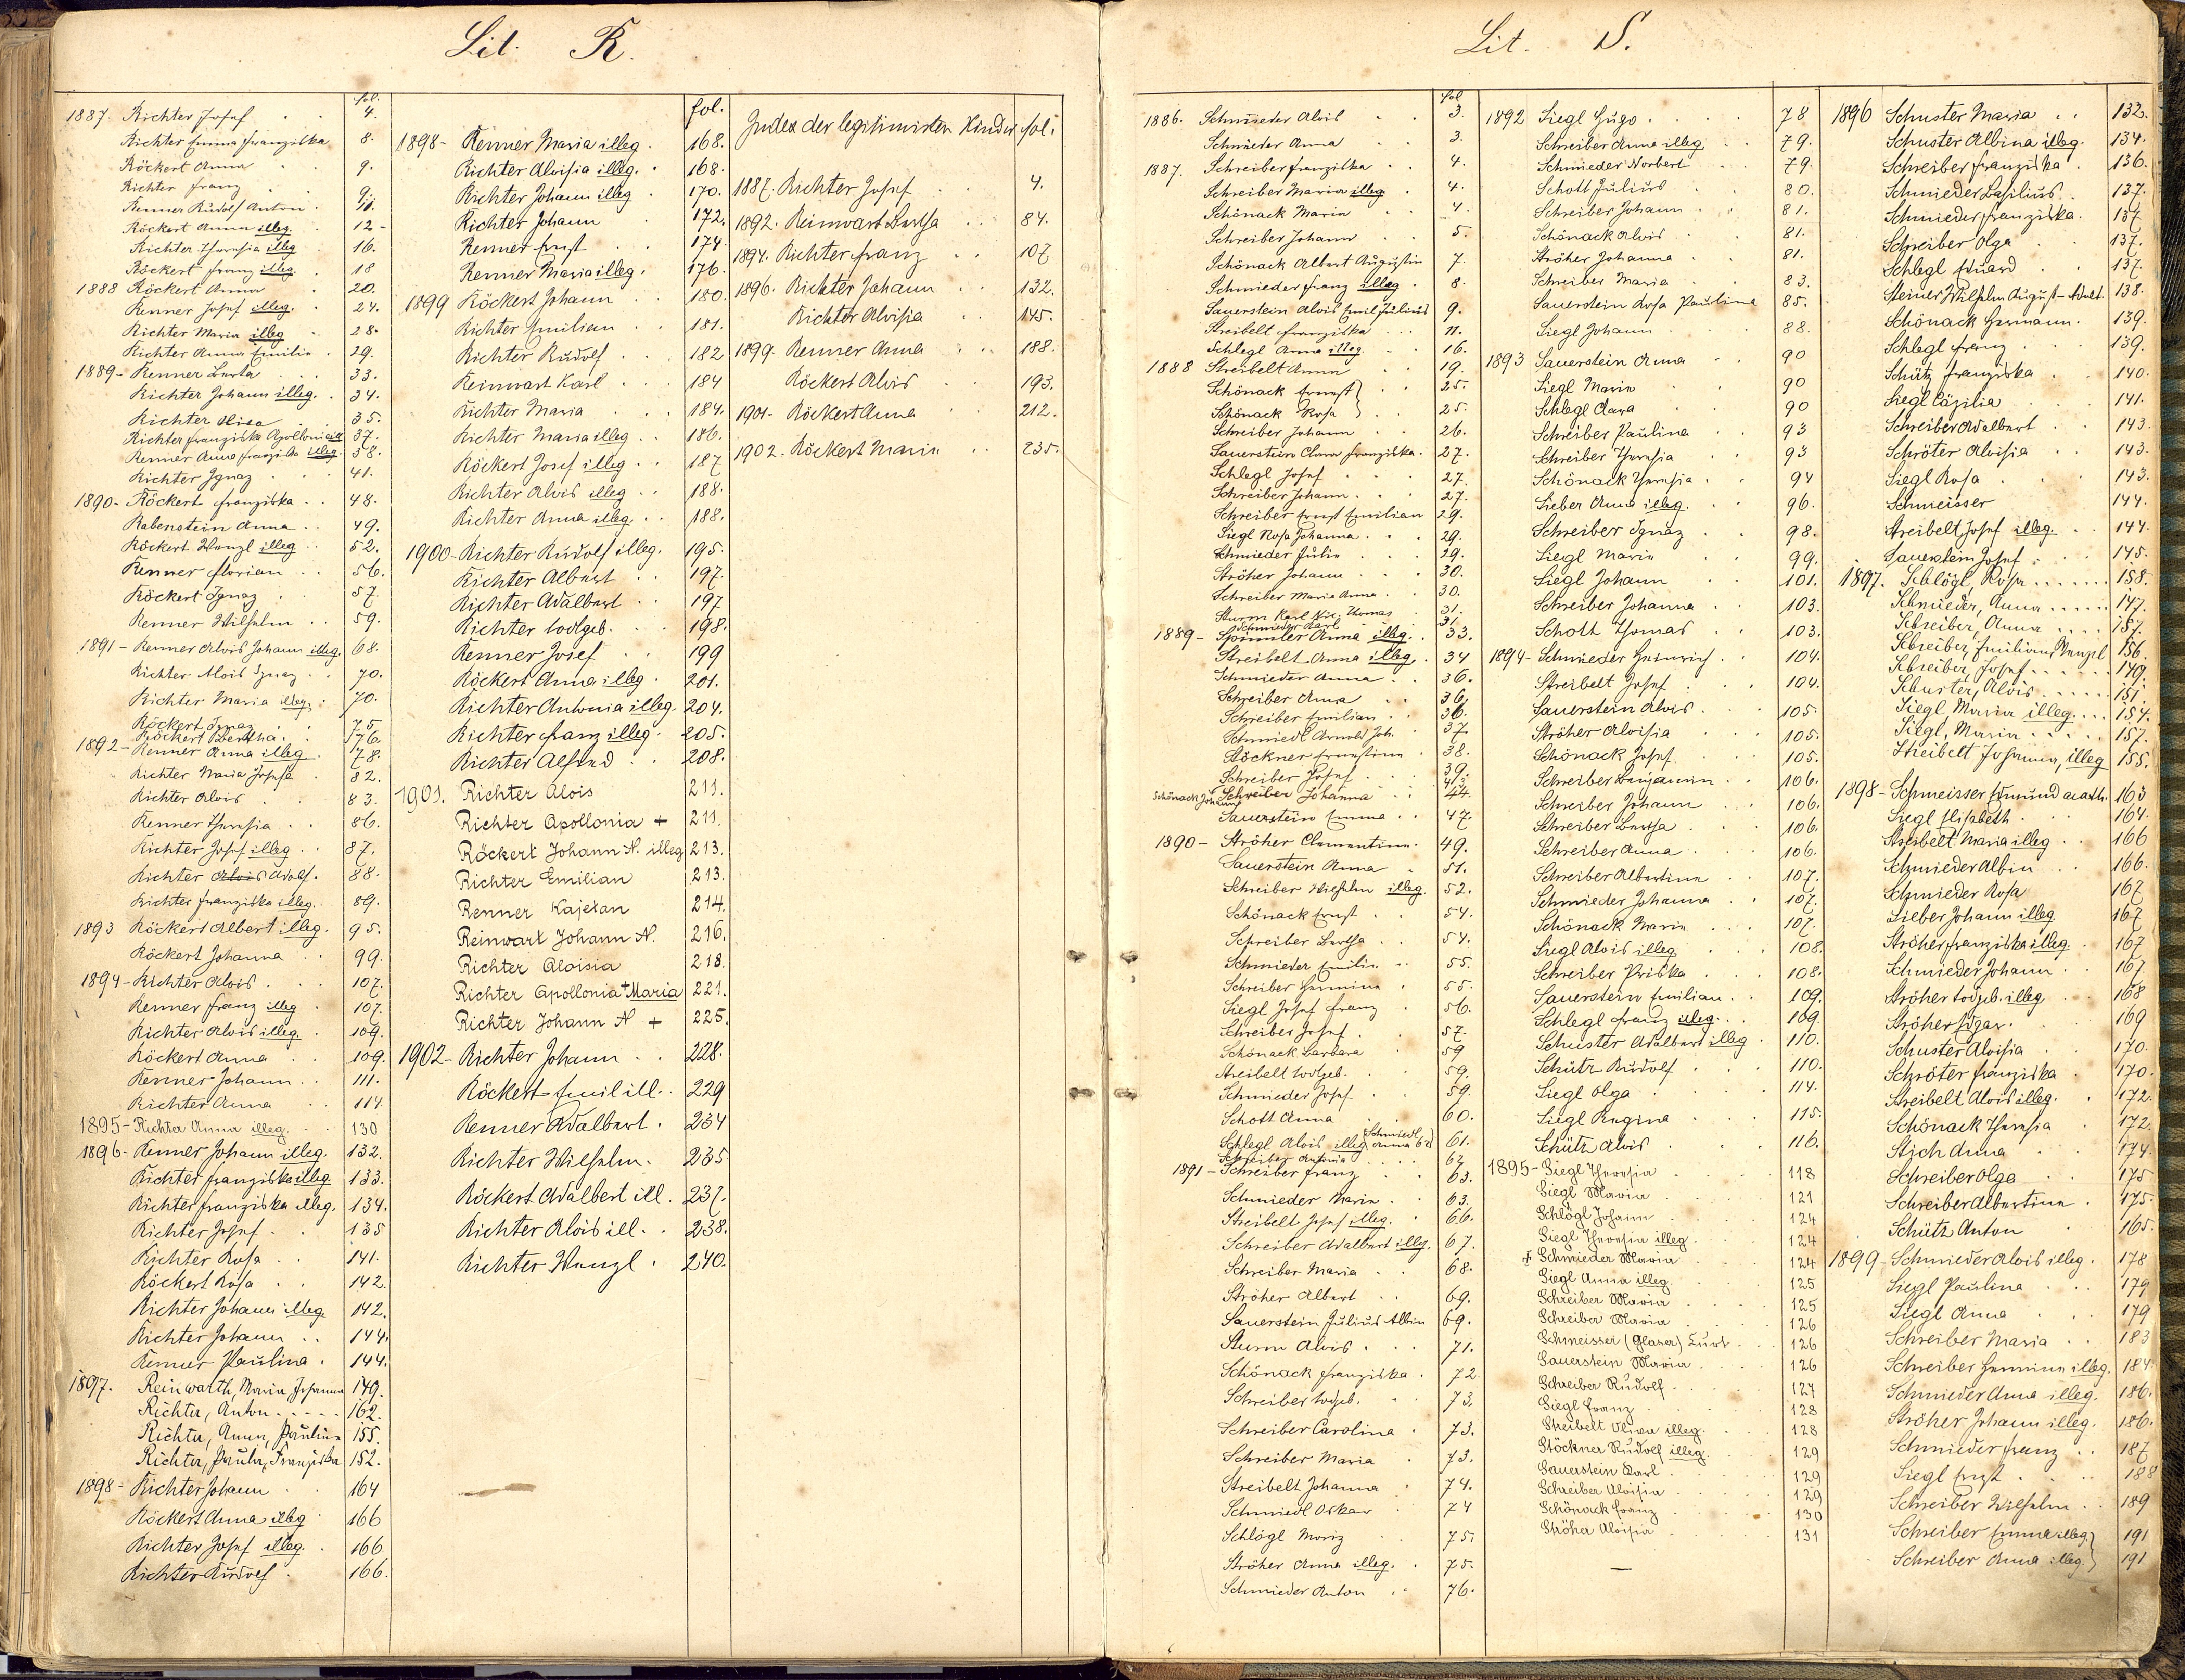 Lit. R.
fol.
1887. Richter Josef 4.
Richter Emma Franziska 8.
Röckert Anna 9.
Richter Franz 9.
Renner Rudolf Anton 11.
Röckert Anna illeg. 12
Richter Theresia illeg 16.
Röckert Franz illeg. 18
1888 Röckert Anna 20.
Renner Josef illeg. 24.
Richter Maria illeg 28.
Richter Anna Emilie 29.
1889 - Renner Berta 33.
Richter Johann illeg. 34.
Richter 35.
Richter Franziska Apollonia ill 37.
Renner Anna Franziska illeg. 38.
Richter Ignaz 41.
1890 - Röckert Franziska 48.
Rabenstein Anna 49.
Röckert Wenzl illeg 52.
Renner Florian 56.
Röckert Ignaz 57.
Renner Wilhelm 59.
1891 - Renner Alois Johann illeg. 68.
Richter Alois Ignaz 70.
Richter Maria illeg. 70.
Röckert Ignaz 75
Röckert Bertha 76
1892 - Renner Anna illeg 78.
Richter Maria Josefa 82.
Richter Alois 83.
Renner Theresia 86.
Richter Josef illeg 87.
Richter Alois Adolf. 88.
Richter Franziska illeg. 89.
1893 Röckert Albert illeg. 95.
Röckert Johanna 99.
1894 - Richter Alois 107.
Renner Franz illeg 107.
Richter Alois illeg. 109.
Röckert Anna 109.
Renner Johann 111.
Richter Anna 114.
1895 - Richter Anna illeg. 130
1896 - Renner Johann illeg. 132.
Richter Franziska illeg 133.
Richter Franziska illeg. 134.
Richter Josef 135
Richter Rosa 141.
Röckert Rosa 142.
Richter Johann illeg 142.
Richter Johann 144.
Renner Paulina 144.
1897. Reinwarth, Maria Johanna 149.
Richter, Anton 162.
Richter, Anna, Paulina 155.
Richter, Paula, Franziska 152.
1898 - Richter Johann 164
Röckert Anna illeg 166
Richter Josef illeg. 166
Richter Rudolf 166.
fol.
1898 - Renner Maria illeg. 168.
Richter Aloisia illeg. 168.
Richter Johann illeg 170.
Richter Johann 172.
Renner Ernst 174.
Renner Maria illeg. 176.
1899 Röckert Johann 180.
Richter Emilian 181.
Richter Rudolf 182
Reinwart Karl 184
Richter Maria 184.
Richter Maria illeg 186.
Röckert Josef illeg 187
Richter Alois illeg 188.
Richter Anna illeg. 188.
1900 - Richter Rudolf illeg. 195.
Richter Albert 197.
Richter Adalbert 197
Richter todtgeb. 198.
Renner Josef 199
Röckert Anna illeg. 201.
Richter Antonia illeg. 204.
Richter Franz illeg. 205.
Richter Alfred 208.
1901. Richter Alois 211.
Richter Apollonia + 211.
Röckert Johann N. illeg 213.
Richter Emilian 213.
Renner Kajetan 214.
Reinwart Johann N. 216.
Richter Aloisia 218.
Richter Apollonia + Maria 221.
Richter Johann N + 225.
1902 - Richter Johann 228.
Röckert Emil ill. 229
Renner Adalbert 234
Richter Wilhelm 235
Röckert Adalbert ill. 237.
Richter Alois ill. 238.
Richter Wenzl 240.
Index der legitimirten Kinder fol.
1887. Richter Josef 4.
1892. Reinwart Bertha 84.
1894. Richter Franz 107
1896. Richter Johann 132.
Richter Aloisia 145.
1899. Renner Anna 188.
Röckert Alois 193.
1901 - Röckert Anna 212.
1902. Röckert Maria 235.
Lit. S.
fol
1886. Schmieder Alois 3.
Schmieder Anna 3.
1887. Schreiber Franziska 4.
Schreiber Maria illeg 4.
Schönack Maria 4.
Schreiber Johann 5.
Schönack Albert Augustin 7.
Schmieder Franz illeg 8.
Sauerstein Alois Emil Julius 9.
Streibelt Franziska 11.
Schlegl Anna illeg. 16.
1888 Streibelt Anna 19.
Schönack Ernest 25.
Schönack Rosa 25.
Schreiber Johann 26.
Sauerstein Clara Franziska. 27.
Schlegl Josef 27.
Schreiber Johann 27.
Schreiber Ernst Emilian 29.
Siegl Rosa Johanna 29.
Schmieder Julie 29.
Ströher Johann 30.
Schreiber Maria Anna 30.
Sturm Karl Nic. Thomas 31.
Schmieder Karl 31
1889 - Spinnler Anna illeg. 33.
Streibelt Anna illeg. 34
Schmieder Anna 36.
Schreiber Anna 36.
Schreiber Emilian 36.
Schmiedl Arnold Joh. 37
Stöckner Ernestine 38.
Schreiber Josef 39.
Schönack Johann 43
Schreiber Johanna 44.
Sauerstein Emma 47.
1890 - Ströher Clementine 49.
Sauerstein Anna 51.
Schreiber Wilhelm illeg. 52.
Schönack Ernst 54.
Schreiber Bertha 54.
Schmieder Emilie 55.
Schreiber Hermine 55.
Siegl Josef Franz 56.
Schreiber Josef 57.
Schönack Barbara 59
Streibelt todtgeb. 59.
Schmieder Josef 59.
Schott Anna 60.
Schlegl Alois illeg. (Schmiedl Anna 62) 61.
Schreiber Antonia 62
1891 - Schreiber Franz 63.
Schmieder Maria 63.
Streibelt Josef illeg. 66.
Schreiber Adalbert illeg. 67.
Schreiber Maria 68.
Ströher Albert 69.
Sauerstein Julius Albin 69.
Sturm Alois 71.
Schönack Franziska 72
Schreiber todtgeb. 73.
Schreiber Carolina 73.
Schreiber Maria 73.
Streibelt Johanna 74.
Schmiedl Oskar 74
Schlögl Moriz 75.
Ströher Anna illeg. 75.
Schmieder Anton 76.
1892 Siegl Hugo 78
Schreiber Anna illeg. 79.
Schmieder Norbert 79.
Schott Julius 80.
Schreiber Johann 81.
Schönack Alois 81.
Ströher Johanna 81.
Schreiber Maria 83.
Sauerstein Rosa Paulina 85.
Siegl Johann 88.
1893 Sauerstein Anna 90
Siegl Maria 90
Schlegl Clara 90
Schreiber Paulina 93
Schreiber Theresia 93
Schönack Theresia 94
Sieber Anna illeg. 96.
Schreiber Ignaz 98.
Siegl Maria 99.
Siegl Johann 101.
Schreiber Johanna 103.
Schott Thomas 103.
1894 - Schmieder Heinrich 104.
Streibelt Josef 104.
Sauerstein Alois 105.
Ströher Aloisia 105.
Schönack Josef 105.
Schreiber Benjamin 106.
Schreiber Johann 106.
Schreiber Bertha 106.
Schreiber Anna 106.
Schreiber Albertina 107.
Schmieder Johanna 107.
Schönack Maria 107.
Siegl Alois illeg 108.
Schreiber Priska 108.
Sauerstein Emilian 109.
Schlegl Franz illeg. 109.
Schuster Adalbert illeg 110.
Schütz Rudolf 110.
Siegl Olga 114.
Siegl Regina 115.
Schütz Alois 116.
1895 - Siegl Theresia 118
Siegl Maria 121
Schlögl Johann 124
Siegl Theresia illeg. 124
+ Schmieder Maria 124
Siegl Anna illeg. 125
Schreiber Maria 125
Schreiber Maria 126
Schmeisser (Glaser) Kurt 126
Sauerstein Maria 126
Schreiber Rudolf 127
Siegl Franz 128
Streibelt Olivia illeg. 128
Stöckner Rudolf illeg. 129
Sauerstein Karl 129
Schreiber Aloisia 129
Schönack Franz 130
Ströher Aloisia 131
1896 Schuster Maria 132.
Schuster Albina illeg. 134.
Schreiber Franziska 136.
Schmieder Basilius 137.
Schmieder Franziska. 137
Schreiber Olga 137.
Schlegl Eduard 137.
Steiner Wilhelm August - Adalt. 138.
Schönack Hermann. 139.
Schlegl Franz 139.
Schütz Franziska 140.
Siegl Cäzilia 141.
Schreiber Adalbert 143.
Schröter Aloisia 143.
Siegl Rosa 143.
Schmeisser 144.
Streibelt Josef illeg. 144.
Sauerstein Josef 145.
1897. Schlögl, Rosa 158.
Schmieder, Anna 147.
Schreiber, Anna 157.
Schreiber, Emilian Wenzel 156.
Schreiber, Josef 149.
Schuster, Alois 151
Siegl Maria illeg. 154.
Siegl, Maria 157.
Streibelt Johanna, illeg 155.
1898 - Schmeisser Edmund acath. 163
Siegl Elisabeth 164.
Streibelt Maria illeg 166
Schmieder Albin 166.
Schmieder Rosa 167
Sieber Johann illeg. 167
Ströher Franziska illeg. 167
Schmieder Johann 167.
Ströher todtgeb. illeg 168
Ströher Edgar 169
Schuster Aloisia 170.
Schröter Franziska 170.
Streibelt Alois illeg. 172.
Schönack Theresia 172.
Stich Anna 174.
Schreiber Olga 175
Schreiber Albertine 175.
Schütz Anton 165.
1899 - Schmieder Alois illeg. 178
Siegl Paulina 179
Siegl Anna 179
Schreiber Maria 183
Schreiber Hermine illeg. 184
Schmieder Anna illeg. 186.
Ströher Johann illeg. 186.
Schmieder Franz 187
Siegl Ernst 188
Schreiber Wilhelm 189
Schreiber Emma illeg. 191
Schreiber Anna illeg. 191